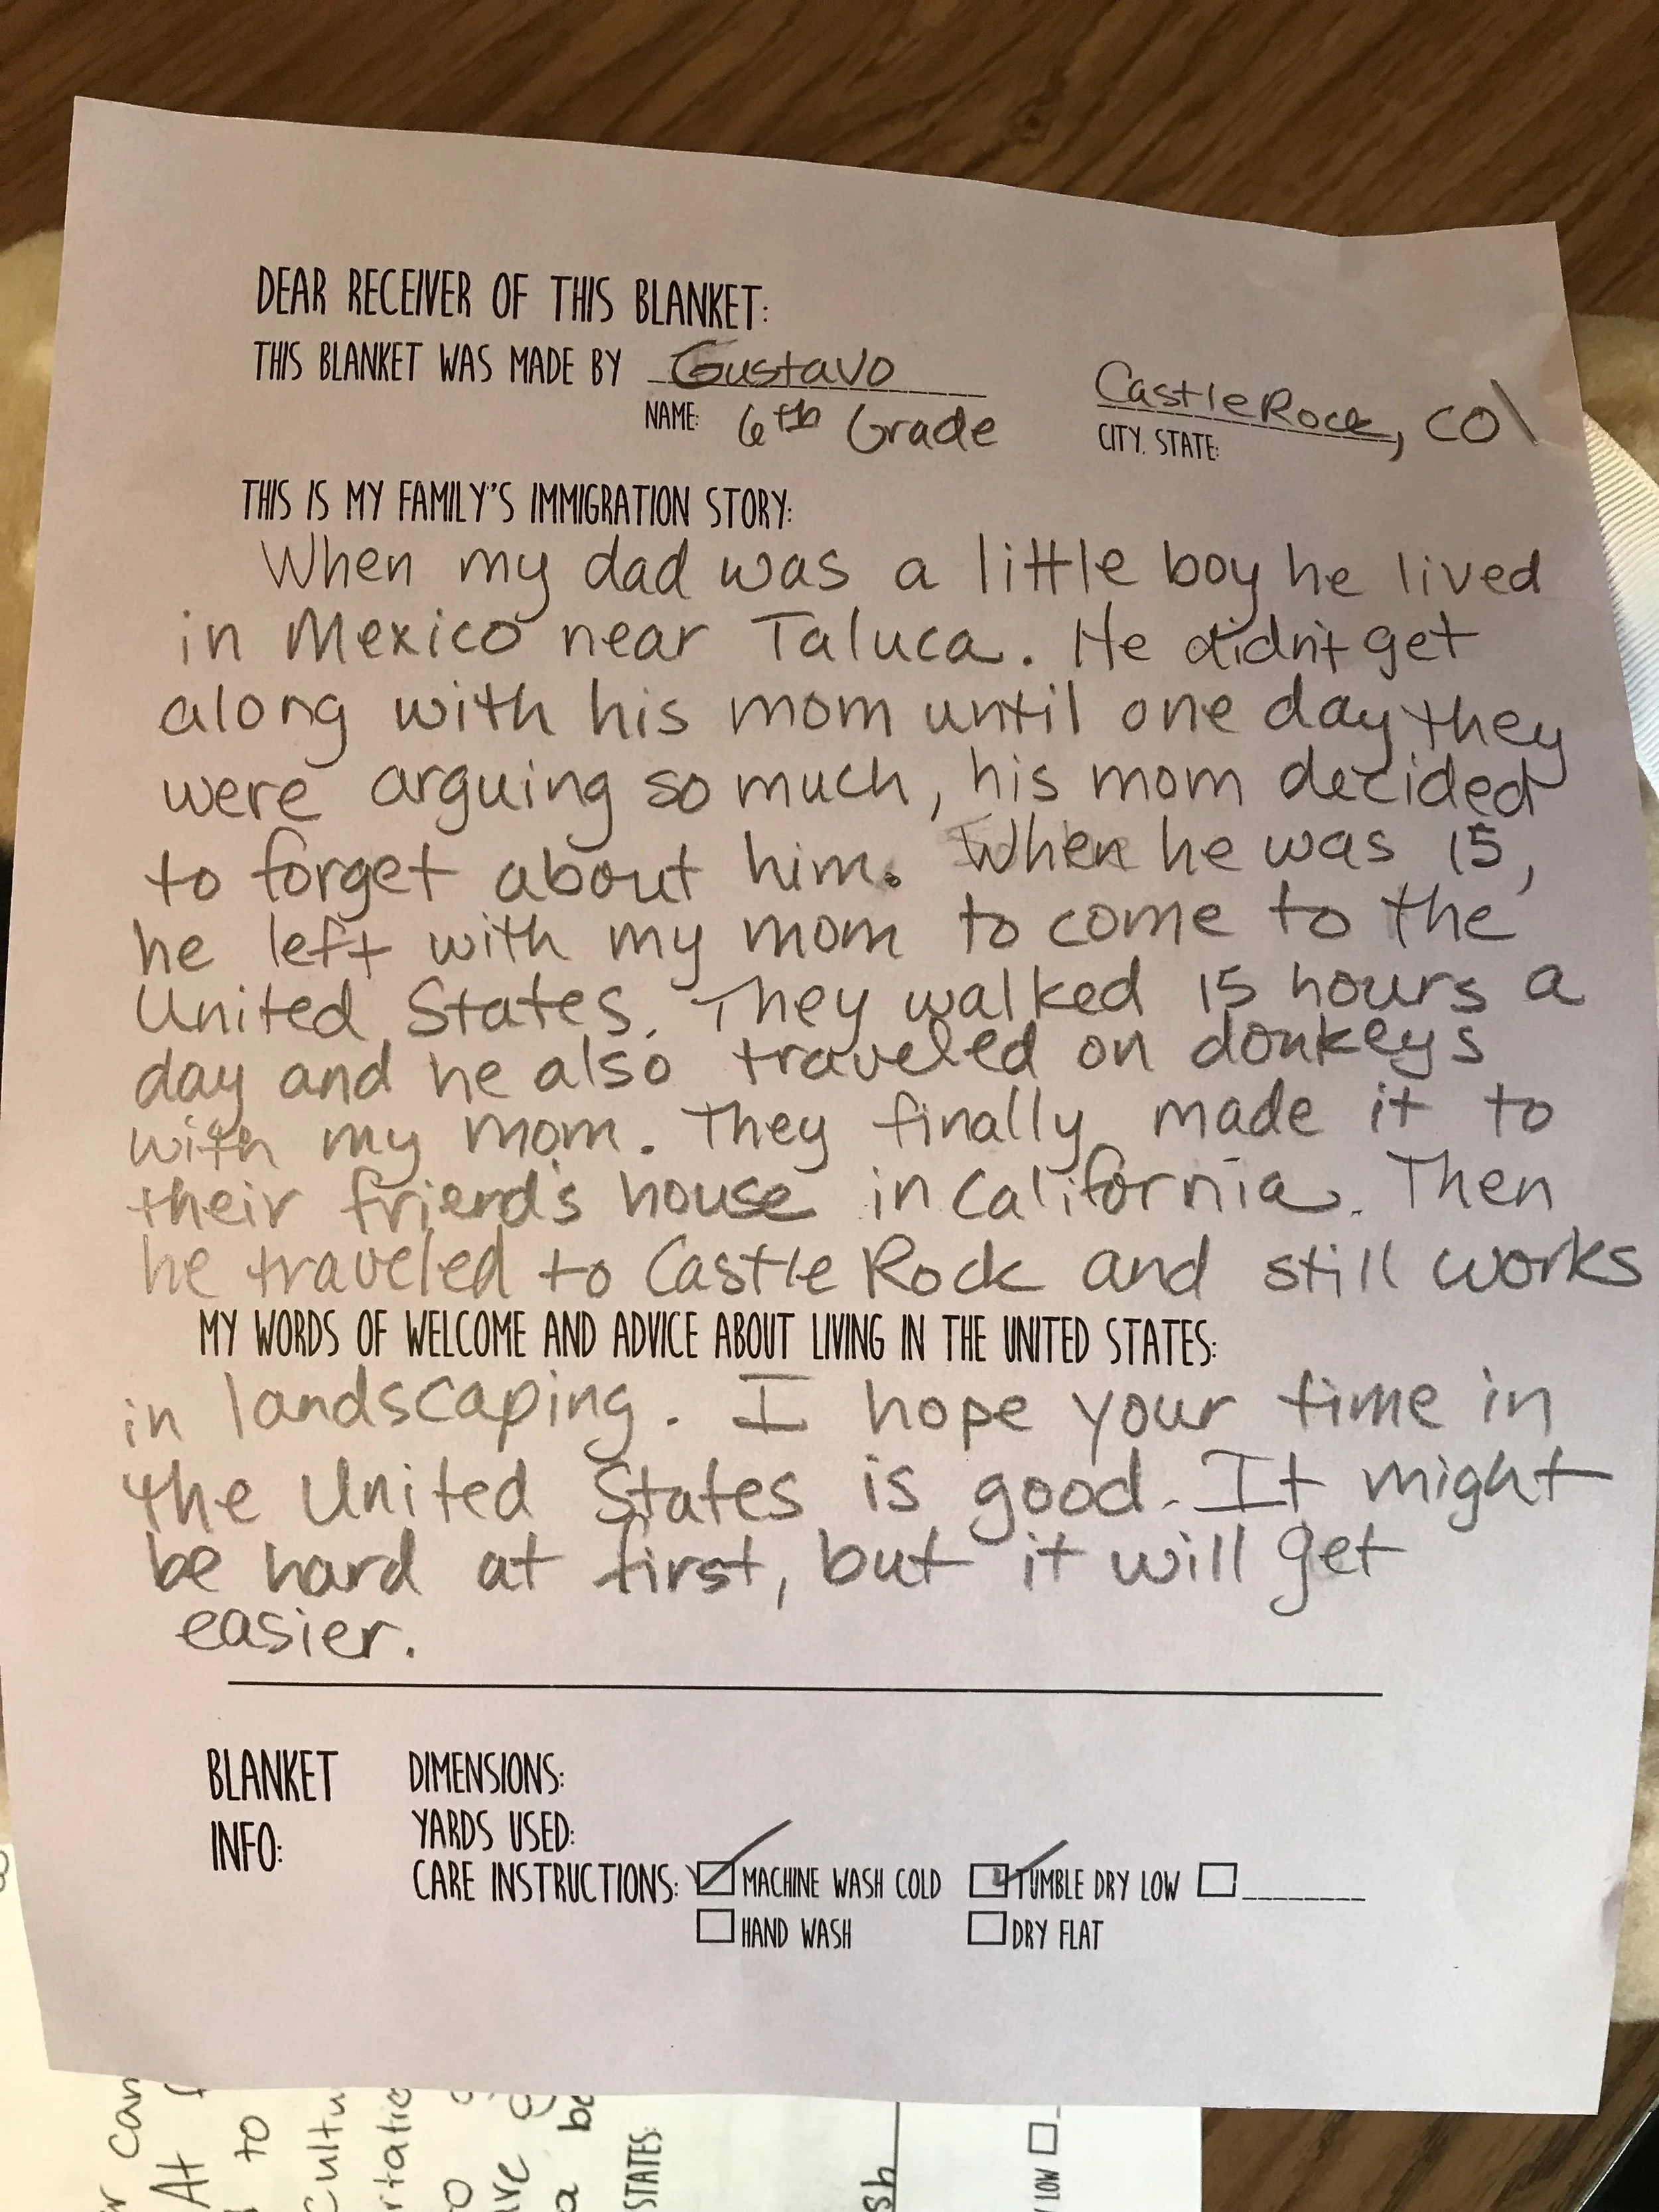 DEAR RECEIVER OF THIS BLANKET:
THIS BLANKET WAS MADE BY Gustavo Castle Rock, CO
NAME: 6th Grade CITY, STATE:
THIS IS MY FAMILY'S IMMIGRATION STORY:
When my dad was a little boy he lived
in Mexico near Taluca. He didn't get
along with his mom until one day they
were arguing so much, his mom decided
to forget about him. When he was 15,
he left with my mom to come to the
United States. They walked 15 hours a
day and he also traveled on donkeys
with my mom. They finally made it to
their friend's house in California. Then
he traveled to Castle Rock and still works
MY WORDS OF WELCOME AND ADVICE ABOUT LIVING IN THE UNITED STATES:
in landscaping. I hope your time in
the United States is good. It might
be hard at first, but it will get
easier.
BLANKET DIMENSIONS:
INFO: YARDS USED:
CARE INSTRUCTIONS: MACHINE WASH COLD TUMBLE DRY LOW
HAND WASH DRY FLAT
can
At
to
STATES:
LOW